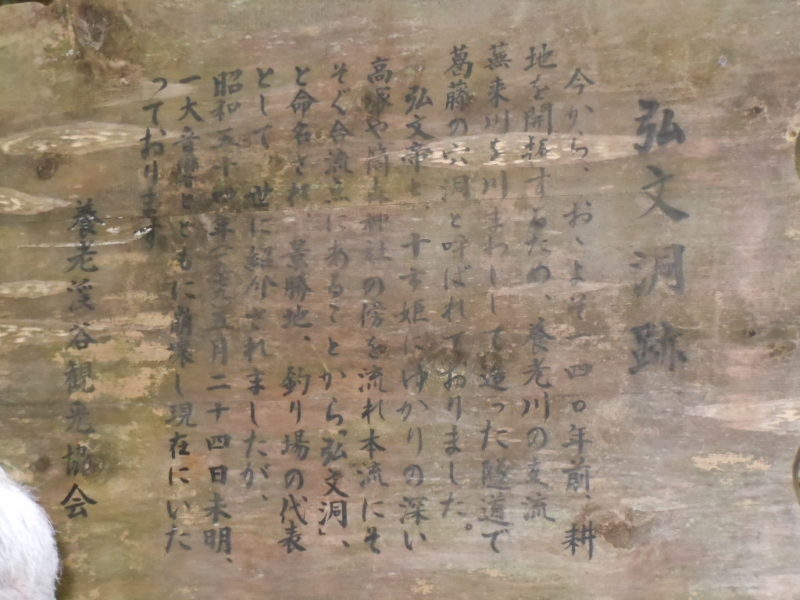 弘文洞跡
今から、およそ一四〇年前、耕
地を開拓するため、養老川の支流
蕪来川を川まわしして造った隧道で
葛藤の穴洞と呼ばれておりました。
弘文帝と十市姫にゆかりの深い
高塚や筒森神社の傍を流れ本流にそ
そぐ合流点にあることから「弘文洞」、
と命名され、景勝地、釣り場の代表
として世に紹介されましたが、
昭和五十四年 五月二十四日未明、
一大音響とともに崩壊し現在にいた
っております
養老渓谷観光協会